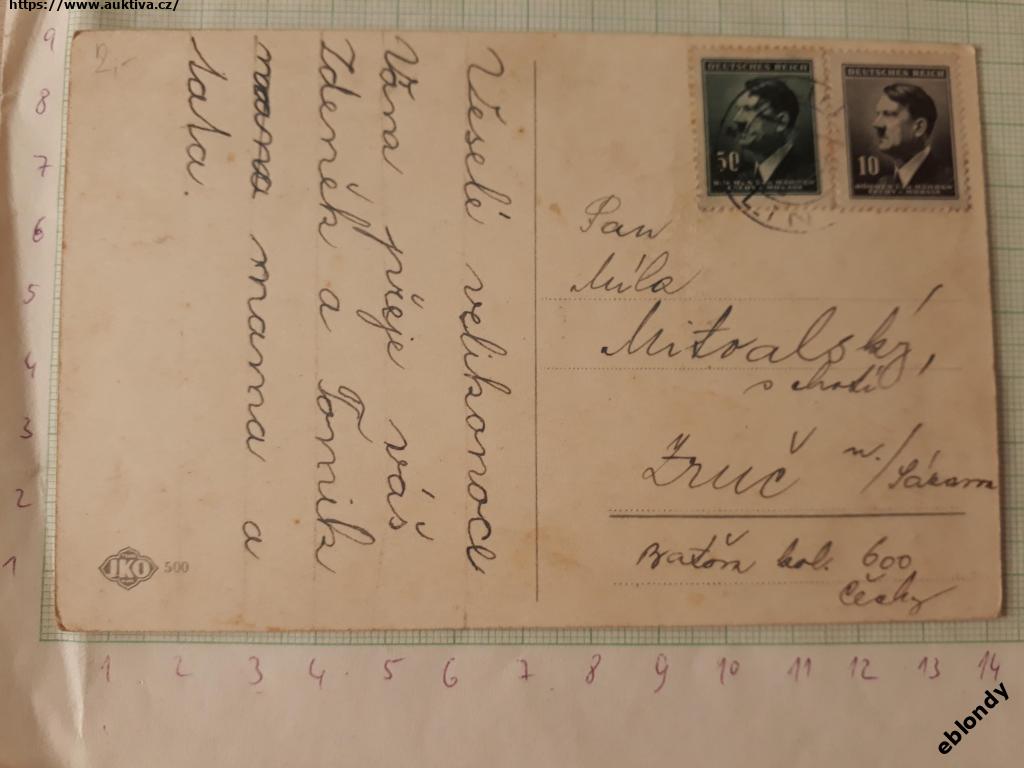 https://www.auktiva.cz/
2,-
Veselé velikonoce
Vám přeje váš
Zdeněk a Toník
mama mama a
tata.
DEUTSCHES REICH
50
DEUTSCHES REICH
10
BÖHMEN U. MÄHREN
LIN
Pan
Míla
Mitvalský,
s chotí
Zruč n./Sázavou
Baťov kol. 600
Česky
JKO 500
9
8
7
6
5
4
3
2
1
1 2 3 4 5 6 7 8 9 10 11 12 13 14
eblondy